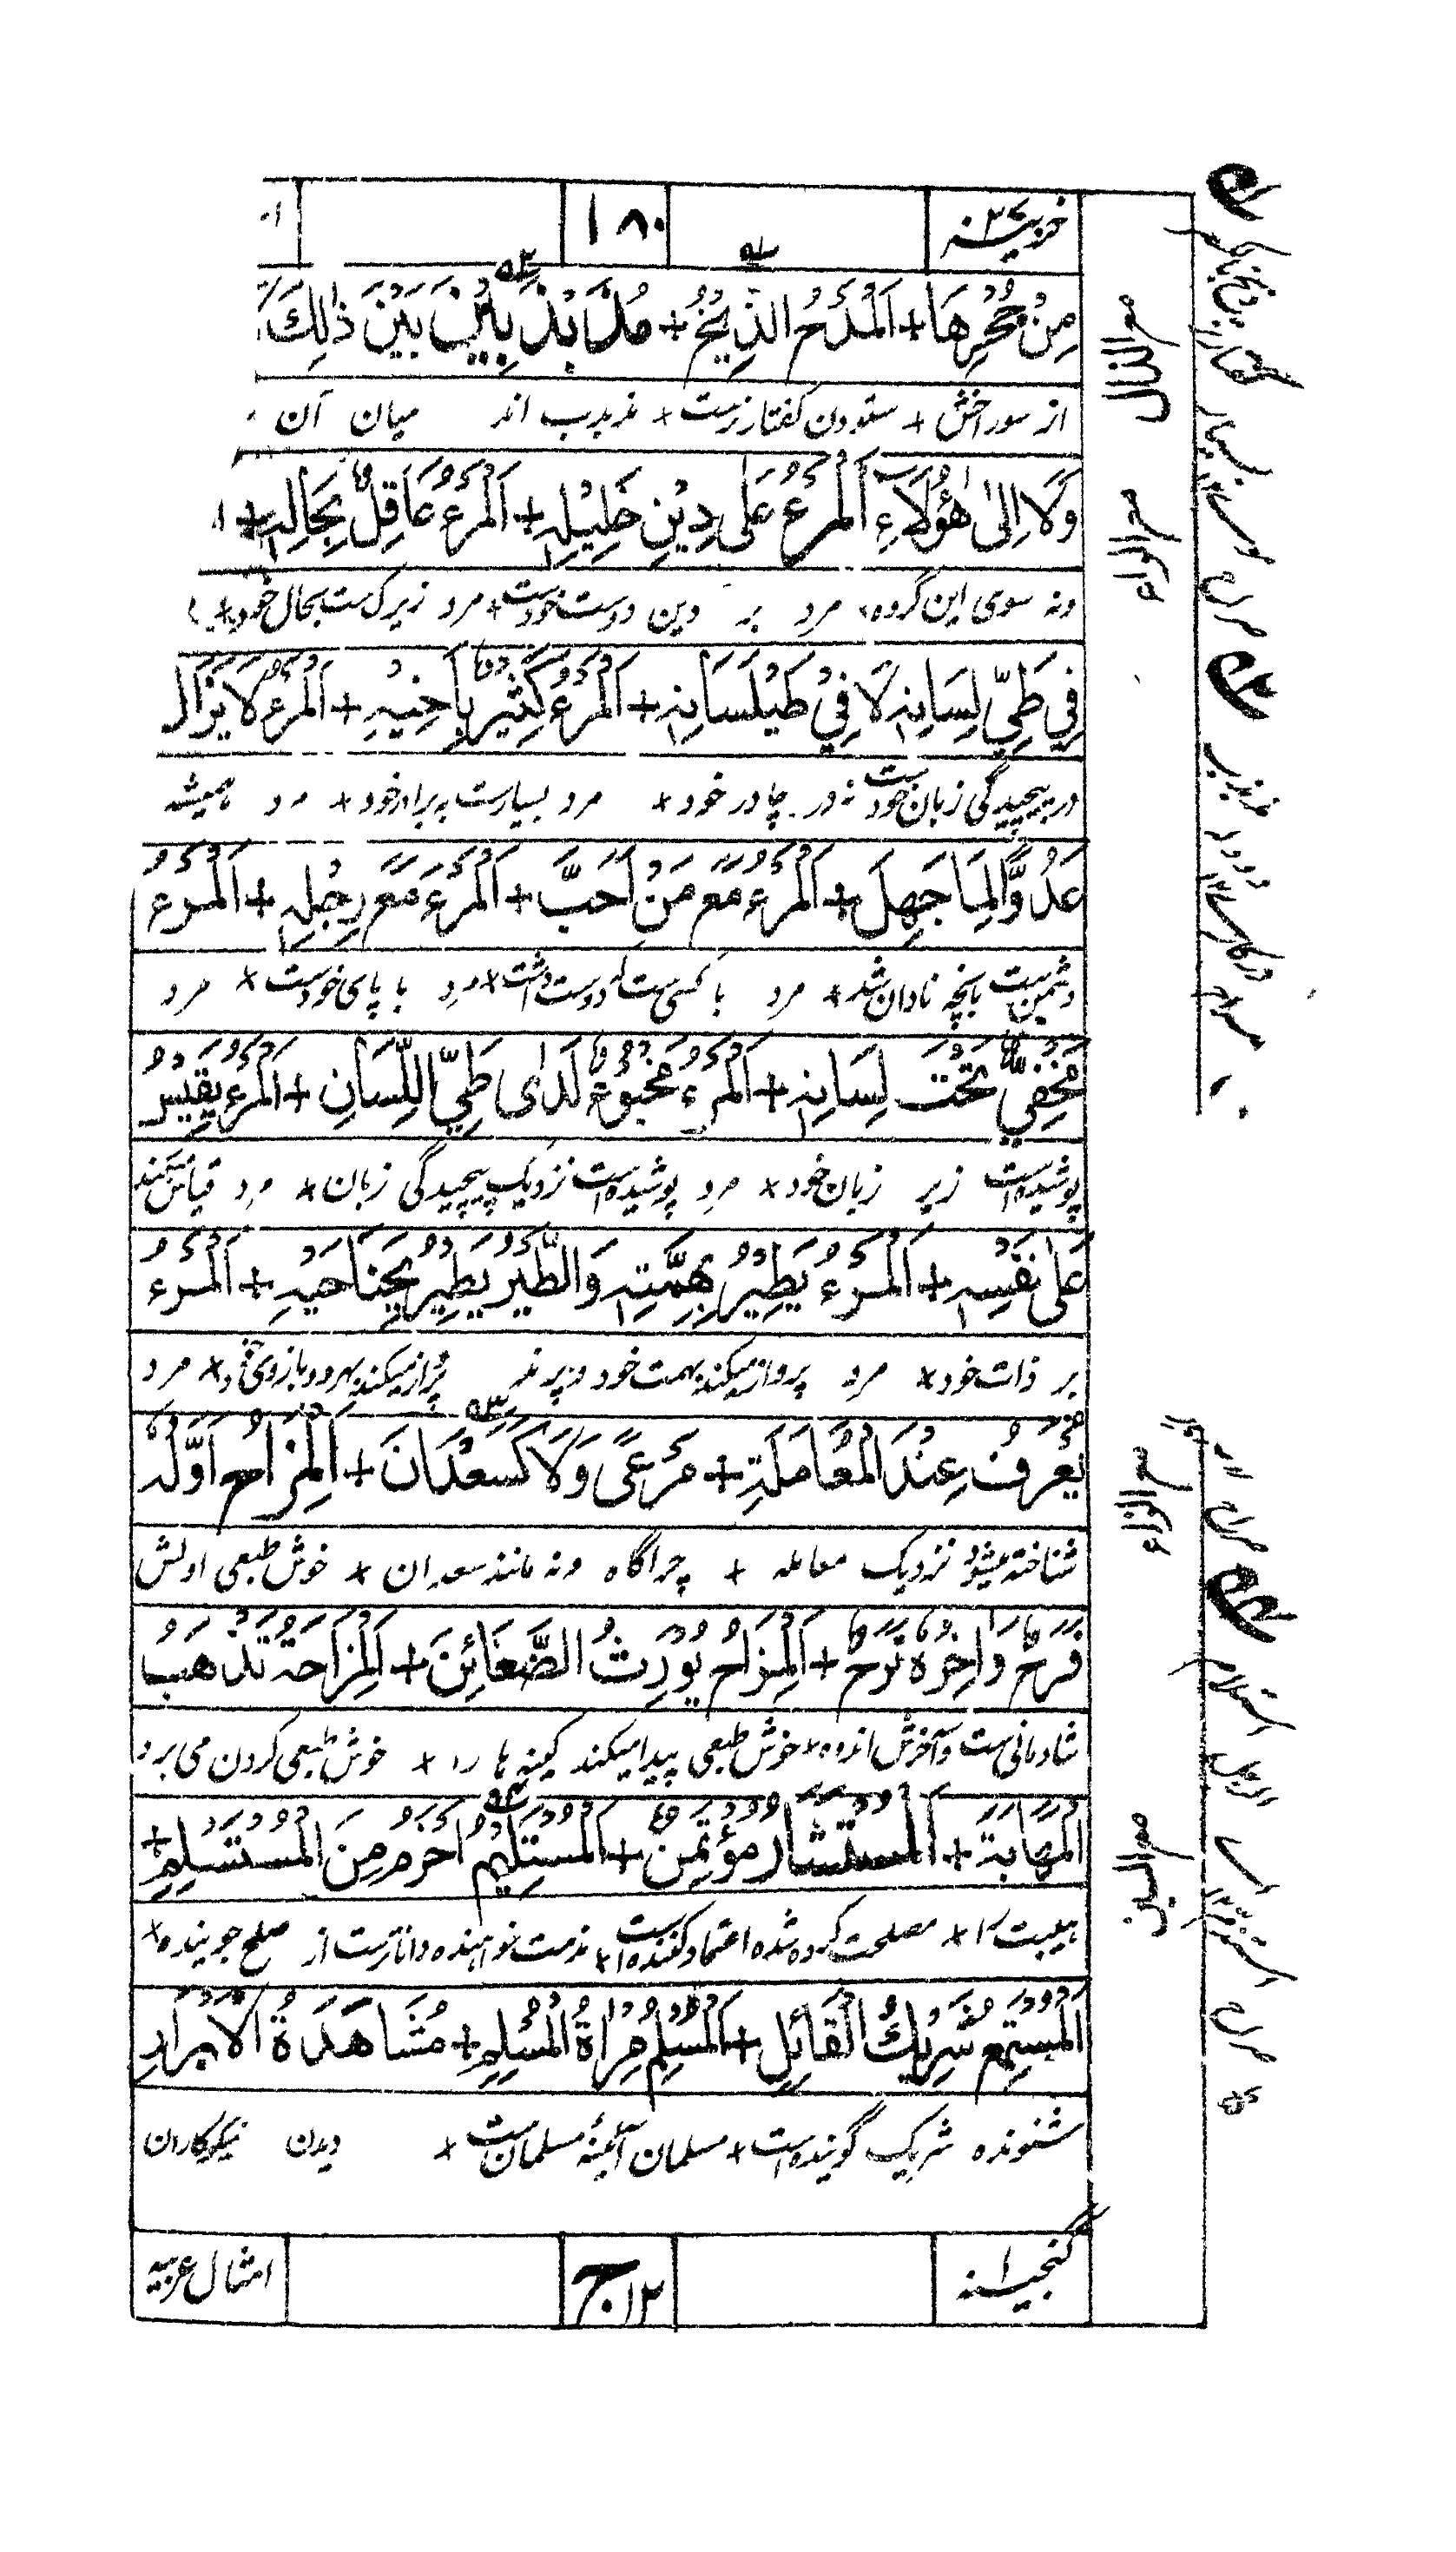 خزینه ۳۶
۱۸۰
مِنْ جُحْرِهَا + اَلْمَدْحُ الذِّیْخُ + مُذَبْذَبِیْنَ بَیْنَ ذٰلِكَ
از سوراخش + ستودن کفتارنرست + مذبذب اند میان آن
وَلَا اِلیٰ هٰؤُلَاءِ اَلْمَرْءُ عَلیٰ دِیْنِ خَلِیْلِهٖ + اَلْمَرْءُ عَاقِلٌ بِحَالِهٖ +
ونه سوی این گروه، مرد بر دین دوست خودست + مرد زیرک ست بحال خود +
فِیْ طَیِّ لِسَانِهٖ لَا فِیْ طَیْلَسَانِهٖ + اَلْمَرْءُ كَثِیْرٌ بِاَخِیْهِ + اَلْمَرْءُ لَا یَزَالُ
در پیچیدگی زبان خودست نه در چادر خود + مرد بسیارست به برادر خود + مرد همیشه
عَدُوًّا لِمَا جَهِلَ + اَلْمَرْءُ مَعَ مَنْ اَحَبَّ + اَلْمَرْءُ مَعَ رِجْلِهٖ + اَلْمَرْءُ
دشمن ست بانچه نادان شد + مرد با کسی ست که دوست داشت + مرد با پای خودست + مرد
مَخْفِیٌّ تَحْتَ لِسَانِهٖ + اَلْمَرْءُ مَخْبُوْءٌ لَدیٰ طَیِّ اللِّسَانِ + اَلْمَرْءُ یَقِیْسُ
پوشیده است زیر زبان خود + مرد پوشیده است نزدیک پیچیدگی زبان + مرد قیاس میکند
عَلیٰ نَفْسِهٖ + اَلْمَرْءُ یَطِیْرُ بِهِمَّتِهٖ وَالطَّیْرُ یَطِیْرُ بِجَنَاحَیْهِ + اَلْمَرْءُ
بر ذات خود + مرد پرواز میکند بهمت خود و پرند پرواز میکند بهر دو بازوی خود + مرد
یُعْرَفُ عِنْدَ الْمُعَامَلَةِ + مَرْعًی وَلَا كَسَعْدَانَ + اَلْمِزَاحُ اَوَّلُهٗ
شناخته میشود نزدیک معامله + چراگاه ونه مانند سعدان + خوش طبعی اولش
فَرَحٌ وَاٰخِرُهٗ تَرَحٌ + اَلْمِزَاحُ یُوْرِثُ الضَّغَائِنَ + اَلْمِزَاحَةُ تُذْهِبُ
شادمانی ست و آخرش اندوه + خوش طبعی پیدا میکند کینه ها را + خوش طبعی کردن می برد
الْمَهَابَةَ + اَلْمُسْتَشَارُ مُؤْتَمَنٌ + اَلْمُسْتَلِیْمُ اَحْزَمُ مِنَ الْمُسْتَسْلِمِ +
هیبت را + مصلحت کرده شده اعتماد کننده است + مذمت خواهنده داناترست از صلح جوینده +
اَلْمُسْتَمِعُ شَرِیْكُ الْقَائِلِ + اَلْمُسْلِمُ مِرْاٰةُ الْمُسْلِمِ + مُشَاهَدَةُ الْاَبْرَارِ
شنونده شریک گوینده است + مسلمان آئینهٔ مسلمان ست + دیدن نیکوکاران
گنجینه ۱
۱۲ ج
امثال عربیه
مع الذال
مع الراء
مع الزاء
مع السین